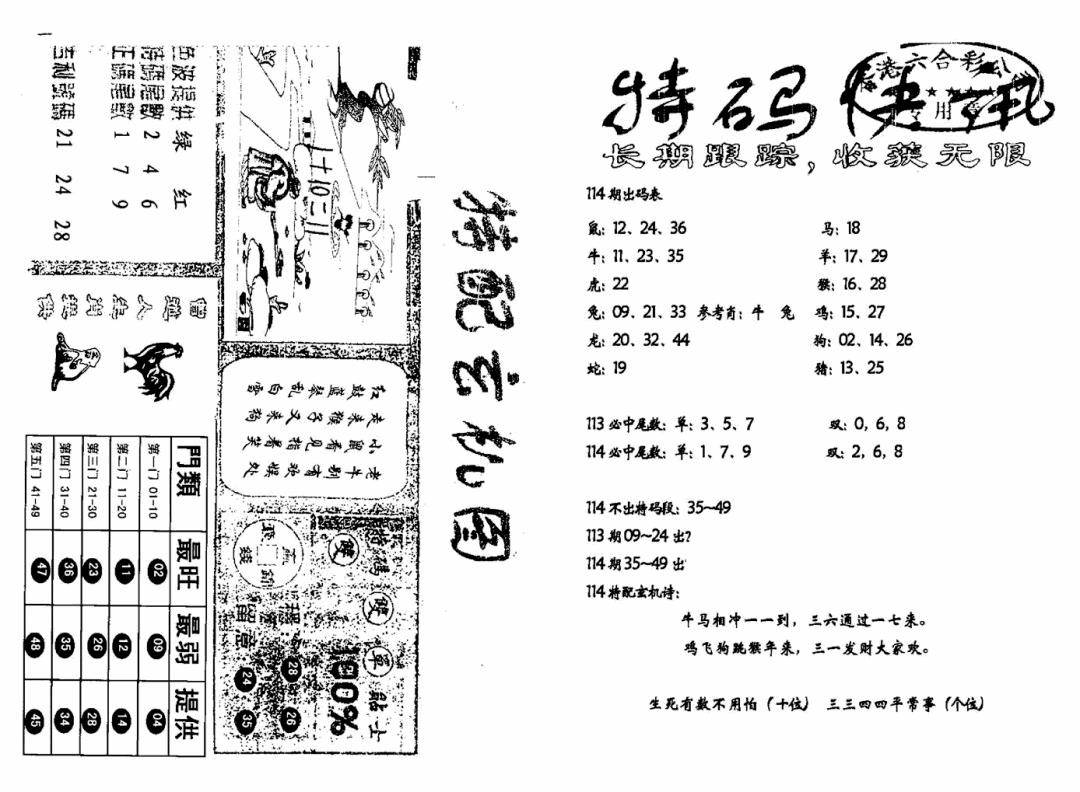 特码快讯
香港六合彩公司
★★★★★
专用章
长期跟踪，收获无限
114期出码表
鼠：12、24、36
马：18
牛：11、23、35
羊：17、29
虎：22
猴：16、28
兔：09、21、33 参考肖：牛 兔
鸡：15、27
龙：20、32、44
狗：02、14、26
蛇：19
猪：13、25
113必中尾数：单：3、5、7
双：0，6，8
114必中尾数：单：1、7、9
双：2，6，8
114不出特码段：35~49
113期09~24出？
114期35~49出
114特配玄机诗：
牛马相冲一一到，三六通过一七来。
鸡飞狗跳猴年来，三一发财大家欢。
生死有数不用怕（十位） 三三四四平常事（个位）
特配玄机图
色波提供 绿 红
特碼尾數 2 4 6
正碼尾數 1 7 9
吉利號碼 21 24 28
曾道人生肖
红鼓蓝琴乱白雪
老来猴子又来狗
小鼠看见指着笑
老牛别有欢娱处
門類 最旺 最弱 提供
第一门 01-10 02 09 04
第二门 11-20 11 12 14
第三门 21-30 23 26 28
第四门 31-40 36 35 34
第五门 41-49 47 48 45
特碼 貼士
雙 雙 單
100%
留意
28 26
24 35